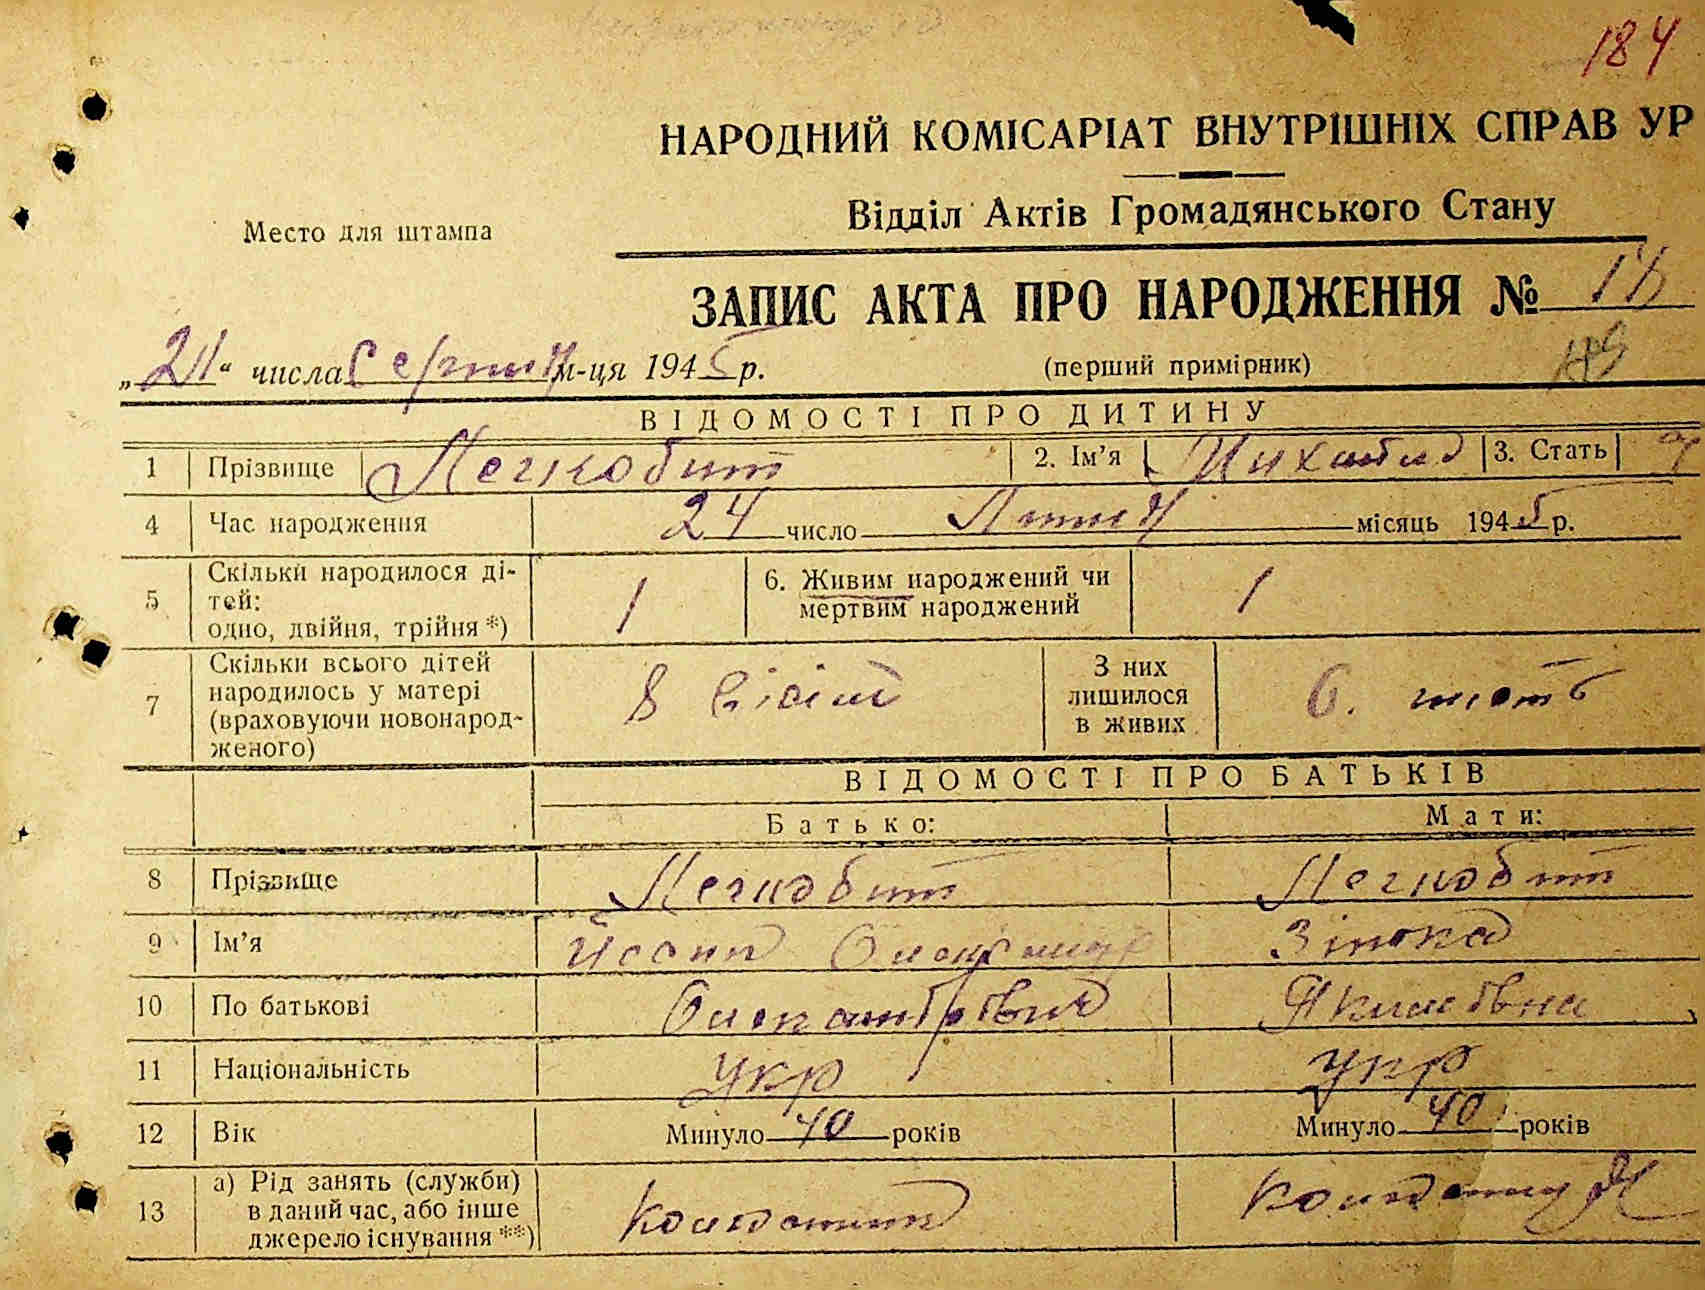 184
НАРОДНИЙ КОМІСАРІАТ ВНУТРІШНІХ СПРАВ УР
Відділ Актів Громадянського Стану
Место для штампа
ЗАПИС АКТА ПРО НАРОДЖЕННЯ №
„21“ числа Серпня м-ця 1945 р.
(перший примірник)
ВІДОМОСТІ ПРО ДИТИНУ
1 Прізвище Легкобит 2. Ім’я Михайло 3. Стать ч
4 Час народження 24 число Липня місяць 1945 р.
5 Скільки народилося ді-
тей:
одно, двійня, трійня *) 1
6. Живим народжений чи
мертвим народжений 1
7 Скільки всього дітей
народилось у матері
(враховуючи новонарод-
женого) 8 вісім
З них
лишилося
в живих 6. шість
ВІДОМОСТІ ПРО БАТЬКІВ
Батько: Мати:
8 Прізвище Легкобит Легкобит
9 Ім’я Йосип Зінька
10 По батькові Олександрович Якимівна
11 Національність укр укр
12 Вік Минуло 40 років Минуло 40 років
13 а) Рід занять (служби)
в даний час, або інше
джерело існування **) Колгоспник Колгоспниця